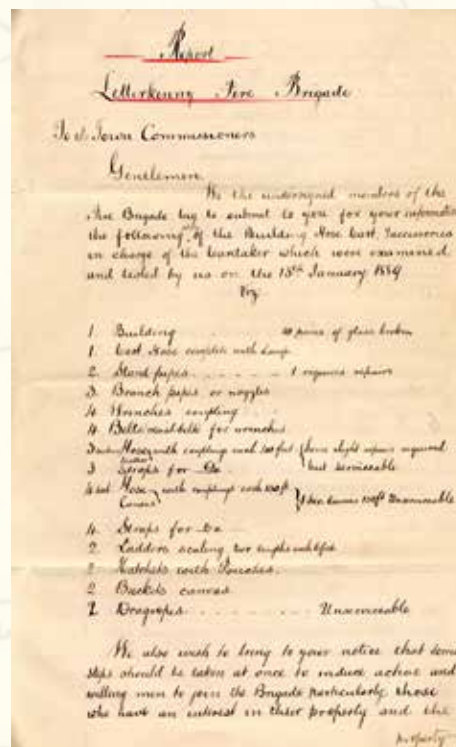 Report
Letterkenny Fire Brigade
To d. Town Commissioners
Gentlemen,
We the undersigned members of the
Fire Brigade beg to submit to you for your information
the following of the Building Hose Cart, accessories
in charge of the Caretaker which were examined
and tested by us on the 13th January 1889
Viz
1 Building panes of glass broken
1. Cart Hose complete with Lamp
2. Stand pipes . . . . . . 1 requires repairs
3. Branch pipes or nozzles
4. Wrenches coupling
4 Belts for wrenches
Hose with couplings each 100 feet some slight repairs required
3 Straps for Do. but serviceable
4 Hose Canvas with couplings each 100 ft Unserviceable
4. Straps for Do
2. Ladders scaling, two lengths
2 Hatchets with Pouches.
2 Buckets canvas
2 Dragropes . . . . . . . Unserviceable
We also wish to bring to your notice that some
steps should be taken at once to induce active and
willing men to join the Brigade particularly those
who have an interest in their property and the
property